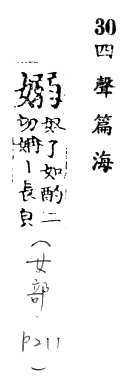 30四聲篇海
嫋奴了如酌二
切嫋丨長皃
(女部,p211)